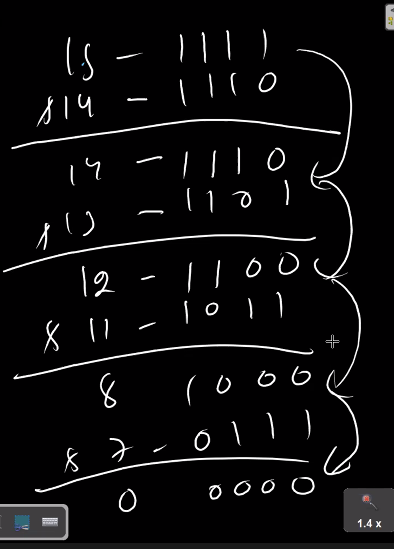 15 - 1111
&14 - 1110
14 - 1110
&13 - 1101
12 - 1100
& 11 - 1011
8 1000
& 7 - 0111
0 0000
1.4 x